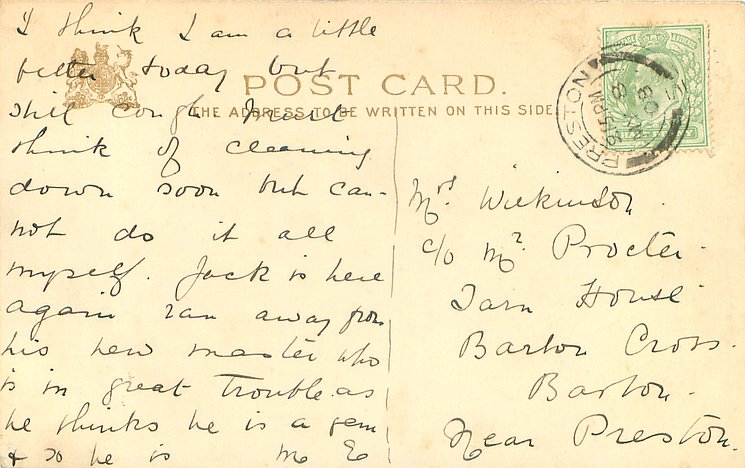 I think I am a little
better today but
still cough. Must
think of cleaning
down soon but can-
not do it all
myself. Jack is here
again ran away from
his new master who
is in great trouble as
he thinks he is a gem
& so he is M E
POST CARD.
THE ADDRESS TO BE WRITTEN ON THIS SIDE
PRESTON
8 15 PM
Mrs Wilkinson.
c/o Mr Procter.
Tarn House
Barton Cross.
Barton.
Near Preston.